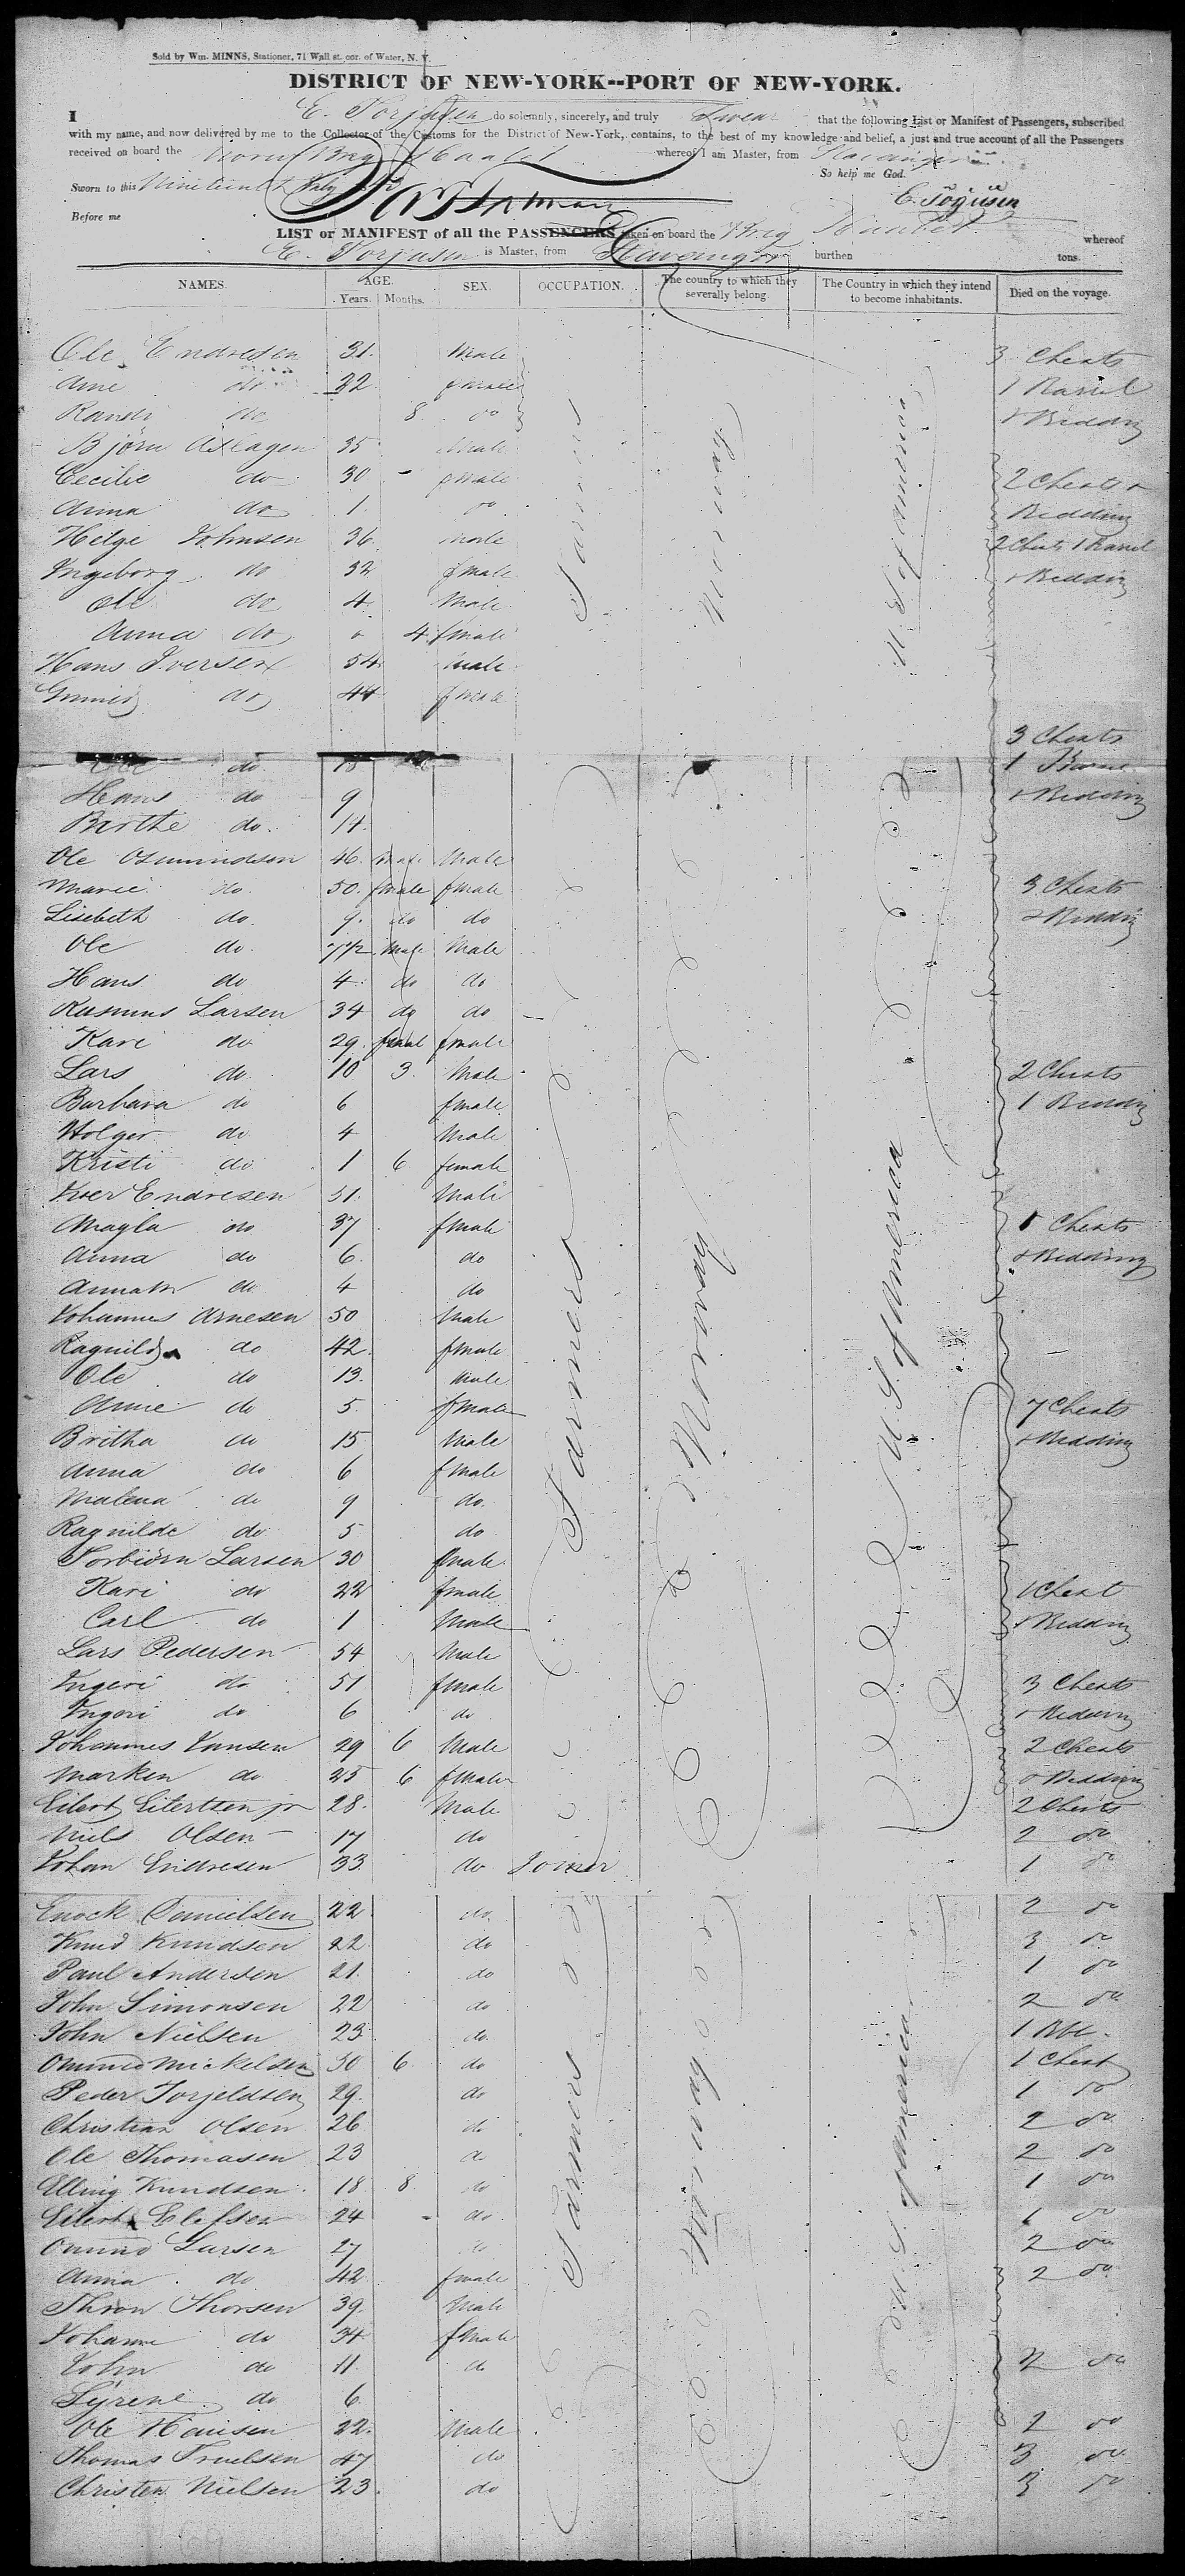 Sold by Wm. MINNS, Stationer, 71 Wall st. cor. of Water, N. Y.
DISTRICT OF NEW-YORK--PORT OF NEW-YORK.
I E. Torjusen do solemnly, sincerely, and truly Swear that the following List or Manifest of Passengers, subscribed
with my name, and now delivered by me to the Collector of the Customs for the District of New-York, contains, to the best of my knowledge and belief, a just and true account of all the Passengers
received on board the Brig whereof I am Master, from Stavanger
So help me God.
Sworn to this Nineteenth July
Before me
LIST or MANIFEST of all the PASSENGERS taken on board the Brig whereof
E. Torjusen is Master, from Stavanger burthen tons.
NAMES. AGE. Years. Months. SEX. OCCUPATION. The country to which they severally belong. The Country in which they intend to become inhabitants. Died on the voyage.
Ole Endresen 31. Male 3 Chests
Ane do 22 female 1 Barrel
do 8 do & Bedding
Björn Aslagen 35 Male
Cecilie do 30 - female 2 Chests &
Anna do 1 do Bedding
Helge Johnsen 36 Male 2 Chests 1 Barrel
Ingeborg do 32 female & Bedding
Ole do 4 Male
Anna do 4 female
Hans Iversen 54 Male
do 44 female
3 Chests
Ole do 1
Hans do 9 & Bedding
Berthe do. 14.
Ole Osmundsen 46. Male Male
Marie do. 50. female female 3 Chests
Lisebeth do. 9. do do & Bedding
Ole do. 7½ Male Male
Hans do 4. do do
Rasmus Larsen 34 do do
Kari do 29. female female
Lars do. 10 3. Male 2 Chests
Barbara do 6 female 1 Bedding
Holger do 4 Male
Kristi do 1 6 female
Iver Endresen 51. Male
Magla do 37 female Chests
Anna do 6. do & Bedding
do 4 do
Johannes Arnesen 50 Male
Ragnild do 42. female
Ole do 13. Male
Anne do 5 female 7 Chests
Britha do 15 Male & Bedding
Anna do 6 female
Malena do 9 do.
Ragnilde do 5 do
Torbiörn Larsen 30 Male
Kari do 22 female 1 Chest
Carl do 1 Male & Bedding
Lars Pedersen 54 Male
Ingeri do 51 female 3 Chests
Ingeri do 6 do & Bedding
Johannes Jansen 29 6 Male 2 Chests
Marken do 25 6 female & Bedding
Eilert Eilertsen jr 28. Male 2 Chests
Niels Olsen 17 do 2 do
Johan Endresen 33 do Joiner 1 do
Farmers
Norway
U. S. of America
Enock Danielsen 22. do. 2 do
Knud Knudsen 22. do 3 do
Paul Andersen 21. do 1 do
John Simonsen 22 do 2 do
John Nielsen 23. do. 1 Bbl.
Omund Mickelsen 30 6 do 1 Chest
Peder Torjeldsen 29. do 1 do
Christian Olsen 26 do 2 do
Ole Thomasen 23 do 2 do
Elling Knudsen 18 8 do 1 do
Eilert Elefsen 24 do. 1 do
Omund Larsen 27 do 2 do
Anna do 42 female 2 do
Thron Thorsen 39. Male
Johanne do 34 female
John do 11. do do
Syrene do 6.
Ole Hansen 22. Male 2 do
Thomas Truelsen 47 do 3 do
Christen Nielsen 23. do 3 do
Farmers
Norway
U. S. of America